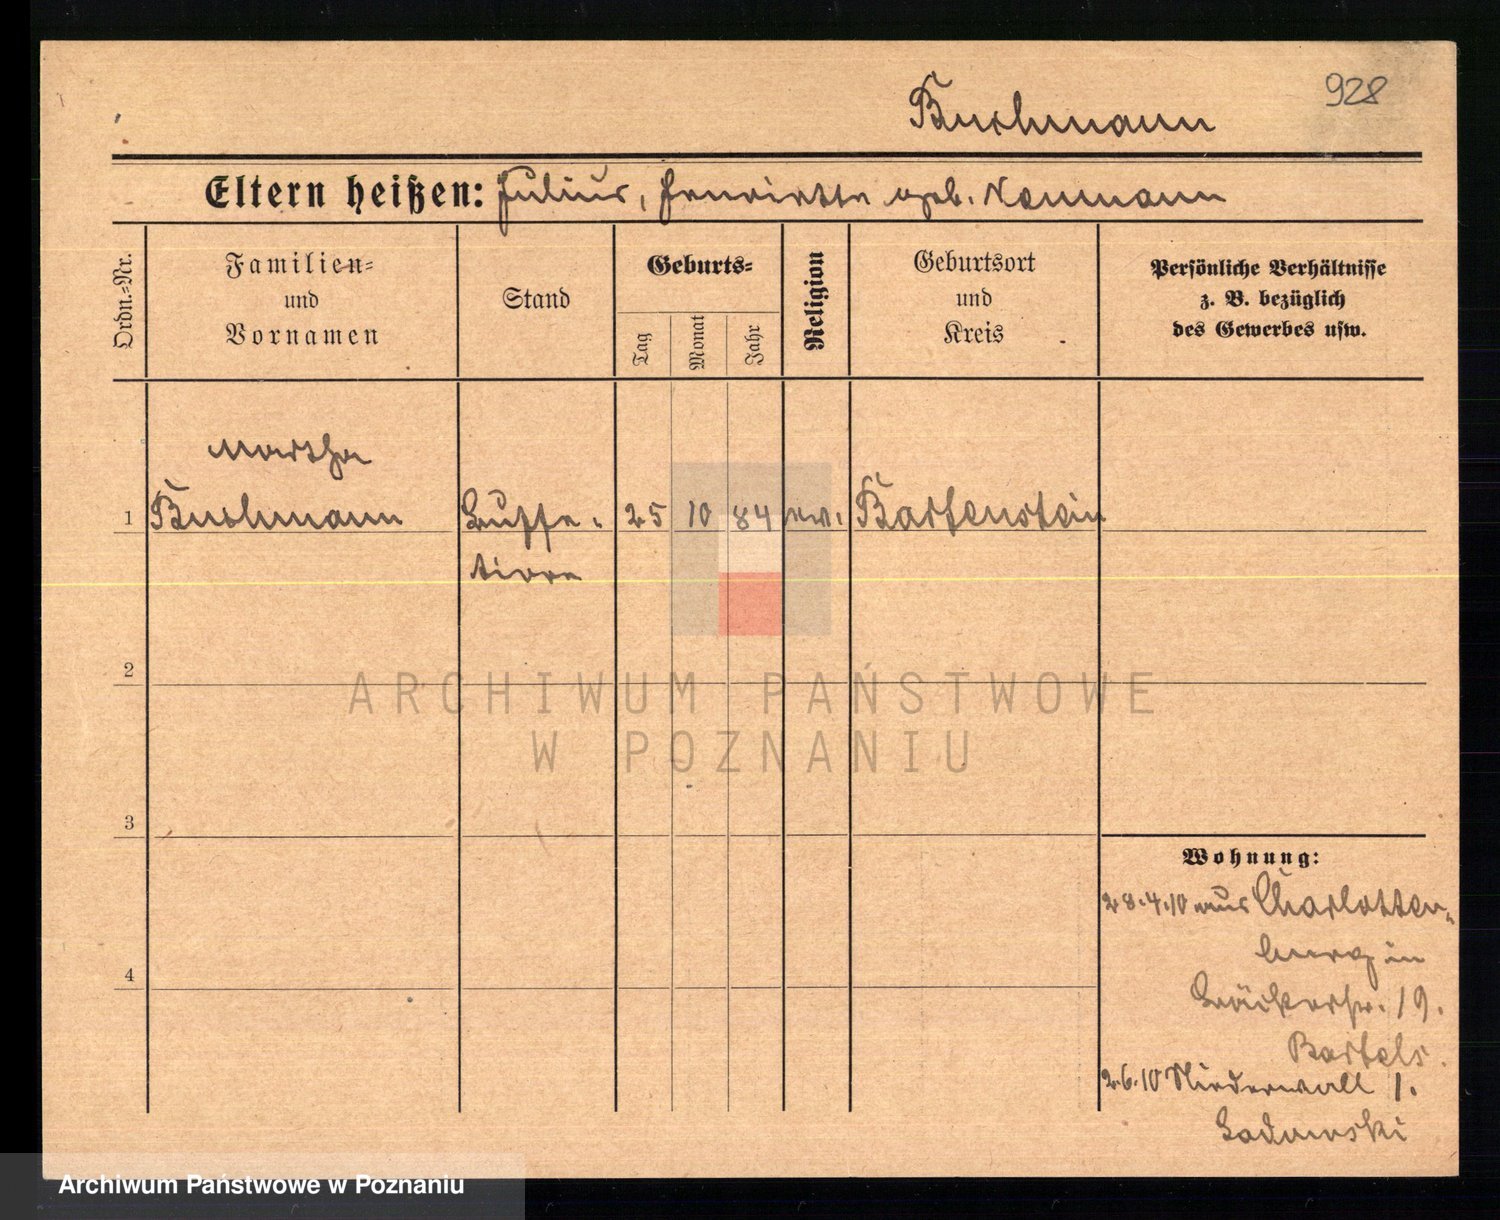 928
Buchmann
Eltern heißen: Julius, Henriette geb. Naumann
Ordn.=Nr.
Familien=
und
Vornamen
Stand
Geburts=
Tag
Monat
Jahr
Religion
Geburtsort
und
Kreis
Persönliche Verhältnisse
z. B. bezüglich
des Gewerbes usw.
Martha
1 Buchmann 25 10 84 ev. Bartenstein
2
ARCHIWUM PAŃSTWOWE
W POZNANIU
3
Wohnung:
28.4.10 aus Charlotten-
burg in
Bäckerstr. 19.
Bartels.
4
2.6.10 Niederwall 1.
Archiwum Państwowe w Poznaniu